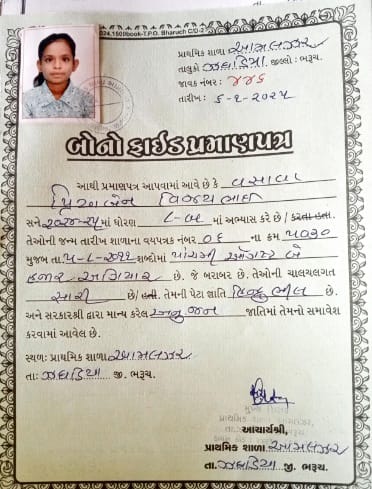 024,1500book-T.P.O. Bharuch C/D-2
પ્રાથમિક શાળા આમલઝર
તાલુકો ઝઘડિયા જીલ્લો : ભરૂચ.
જાવક નંબર : ૪૪૬
તારીખ : ૬-૧-૨૦૨૫
બોનોફાઈડ પ્રમાણપત્ર
આથી પ્રમાણપત્ર આપવામાં આવે છે કે વસાવા
વિજયભાઈ
સને ૨૦૨૪-૨૫માં ધોરણ ૮-બ માં અભ્યાસ કરે છે / કરતા હતા.
તેઓની જન્મ તારીખ શાળાના વયપત્રક નંબર ૦૬ ના ક્રમ ૫૦૩૦
મુજબ તા. ૫-૮-૨૦૧૧ શબ્દોમાં પાંચમી ઓગષ્ટ બે
હજાર અગિયાર છે. જે બરાબર છે. તેઓની ચાલચલગત
સારી છે/ હતી. તેમની પેટા જ્ઞાતિ હિન્દુ ભીલ છે.
અને સરકારશ્રી દ્વારા માન્ય કરેલ અનુ.જન જાતિમાં તેમનો સમાવેશ
કરવામાં આવેલ છે.
સ્થળ: પ્રાથમિક શાળા આમલઝર
તા: ઝઘડિયા જી. ભરૂચ.
આચાર્યશ્રી,
પ્રાથમિક શાળા આમલઝર
તા. ઝઘડિયા જી. ભરૂચ.